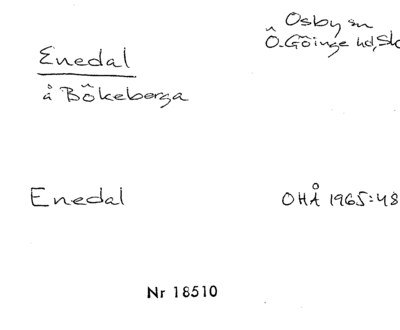 Enedal
å Bökeberga
Osby sn
Ö. Göinge hd,
Enedal
OHÅ 1965:48
Nr 18510